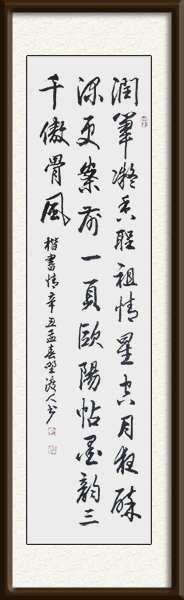 潤筆凝香祖情星空月夜醉
深更案前一頁歐陽帖墨韻三
千傲骨風
楷書情辛丑孟春野渡人書